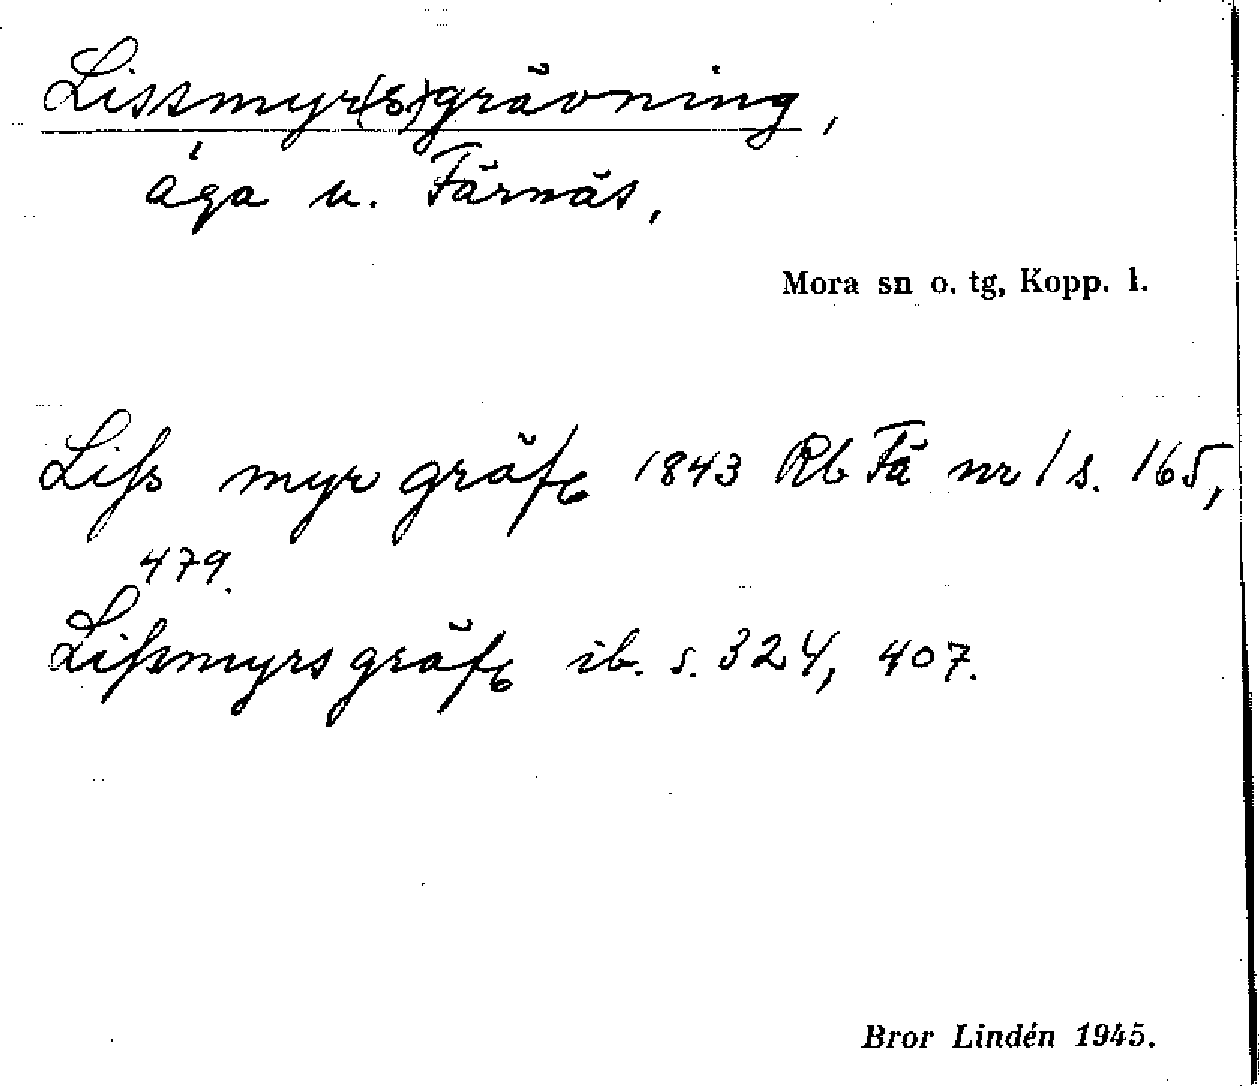 Lissmyr(s)grävning,
äga u. Färnäs,
Mora sn o. tg, Kopp. l.
Liss myr gräfg 1843 Rb Fä nr 1 s. 165,
479.
Lissmyrs gräfg ib. s. 324, 407.
Bror Lindén 1945.